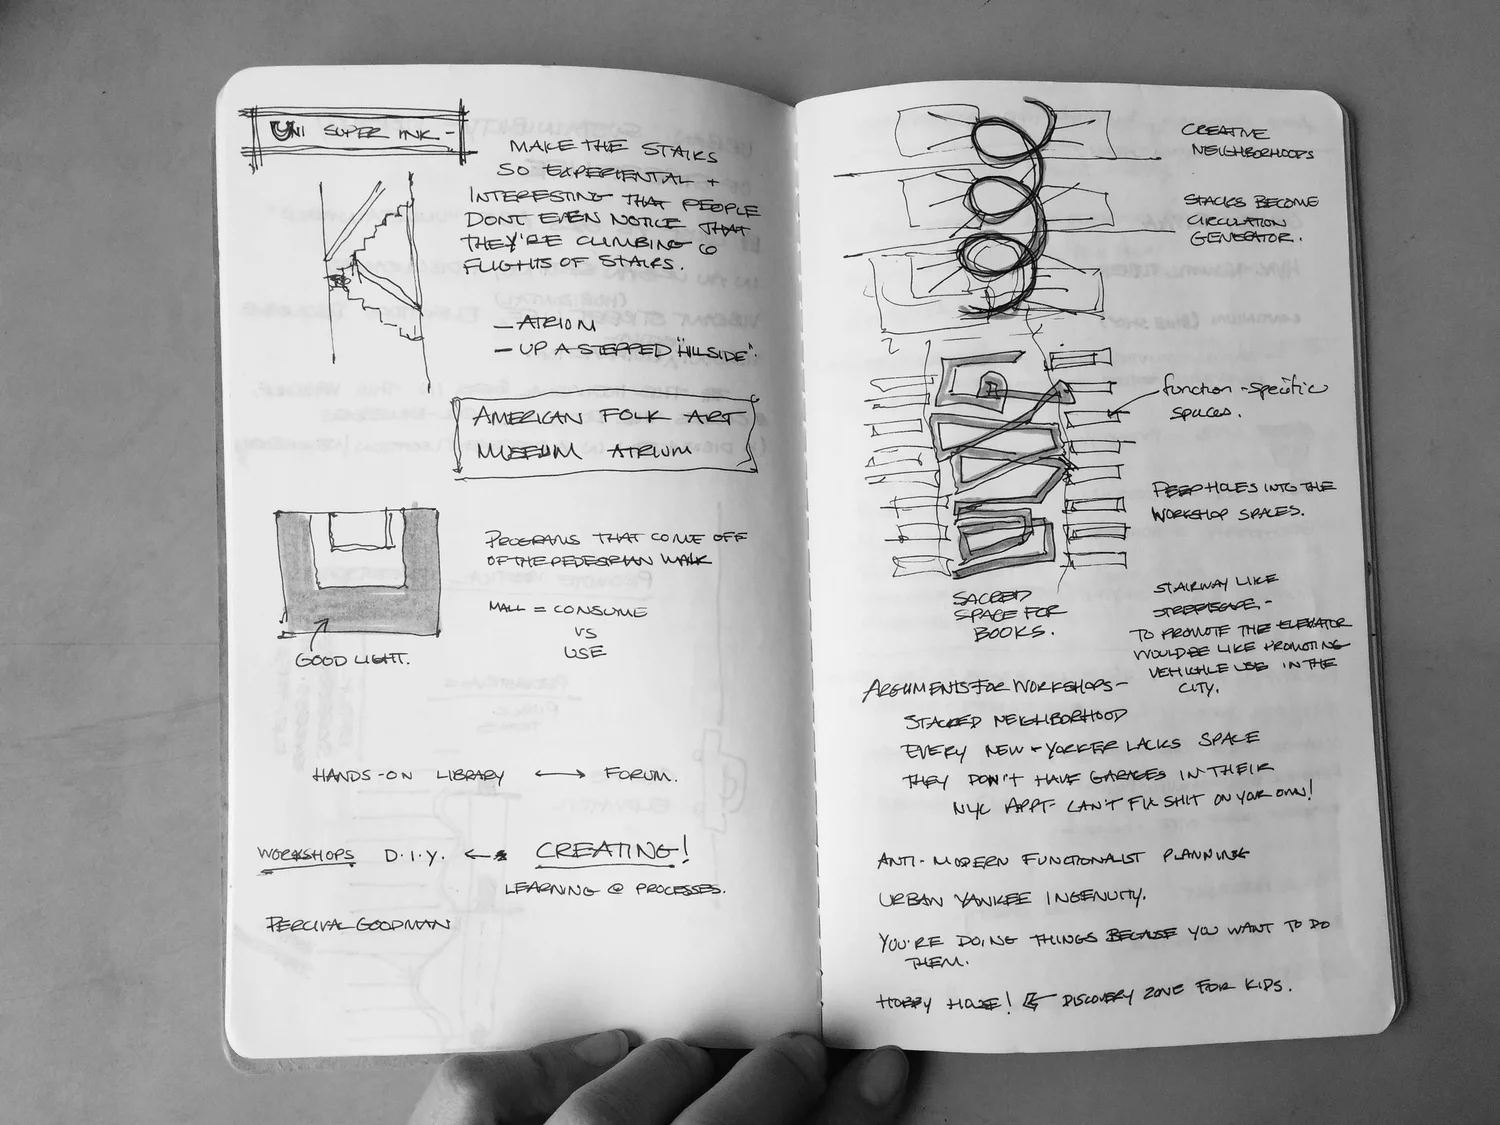 UNI SUPER INK -
MAKE THE STAIRS
SO EXPERIENTAL +
INTERESTING THAT PEOPLE
DONT EVEN NOTICE THAT
THEY'RE CLIMBING 6
FLIGHTS OF STAIRS.
- ATRIUM
- UP A STEPPED "HILLSIDE".
AMERICAN FOLK ART
MUSEUM ATRIUM
PROGRAMS THAT COME OFF
OF THE PEDESRIAN WALK
MALL = CONSUME
VS
USE
GOOD LIGHT.
HANDS-ON LIBRARY ⟷ FORUM.
WORKSHOPS D.I.Y. ← CREATING!
LEARNING @ PROCESSES.
PERCIVAL GOODMAN
CREATIVE
NEIGHBORHOODS
STACKS BECOME
CIRCULATION
GENERATOR.
function-specific
spaces.
PEEPHOLES INTO THE
WORKSHOP SPACES.
SACRED
SPACE FOR
BOOKS.
STAIRWAY LIKE
STREETSCAPE -
TO PROMOTE THE ELEVATOR
WOULD BE LIKE PROMOTING
VEHICHLE USE IN THE
CITY.
ARGUMENTS FOR WORKSHOPS -
STACKED NEIGHBORHOOD
EVERY NEW - YORKER LACKS SPACE
THEY DON'T HAVE GARAGES IN THEIR
NYC APPT - CAN'T FIX SHIT ON YOUR OWN!
ANTI-MODERN FUNCTIONALIST PLANNING
URBAN YANKEE INGENUITY.
YOU'RE DOING THINGS BECAUSE YOU WANT TO DO
THEM.
HOBBY HOUSE! ← DISCOVERY ZONE FOR KIDS.